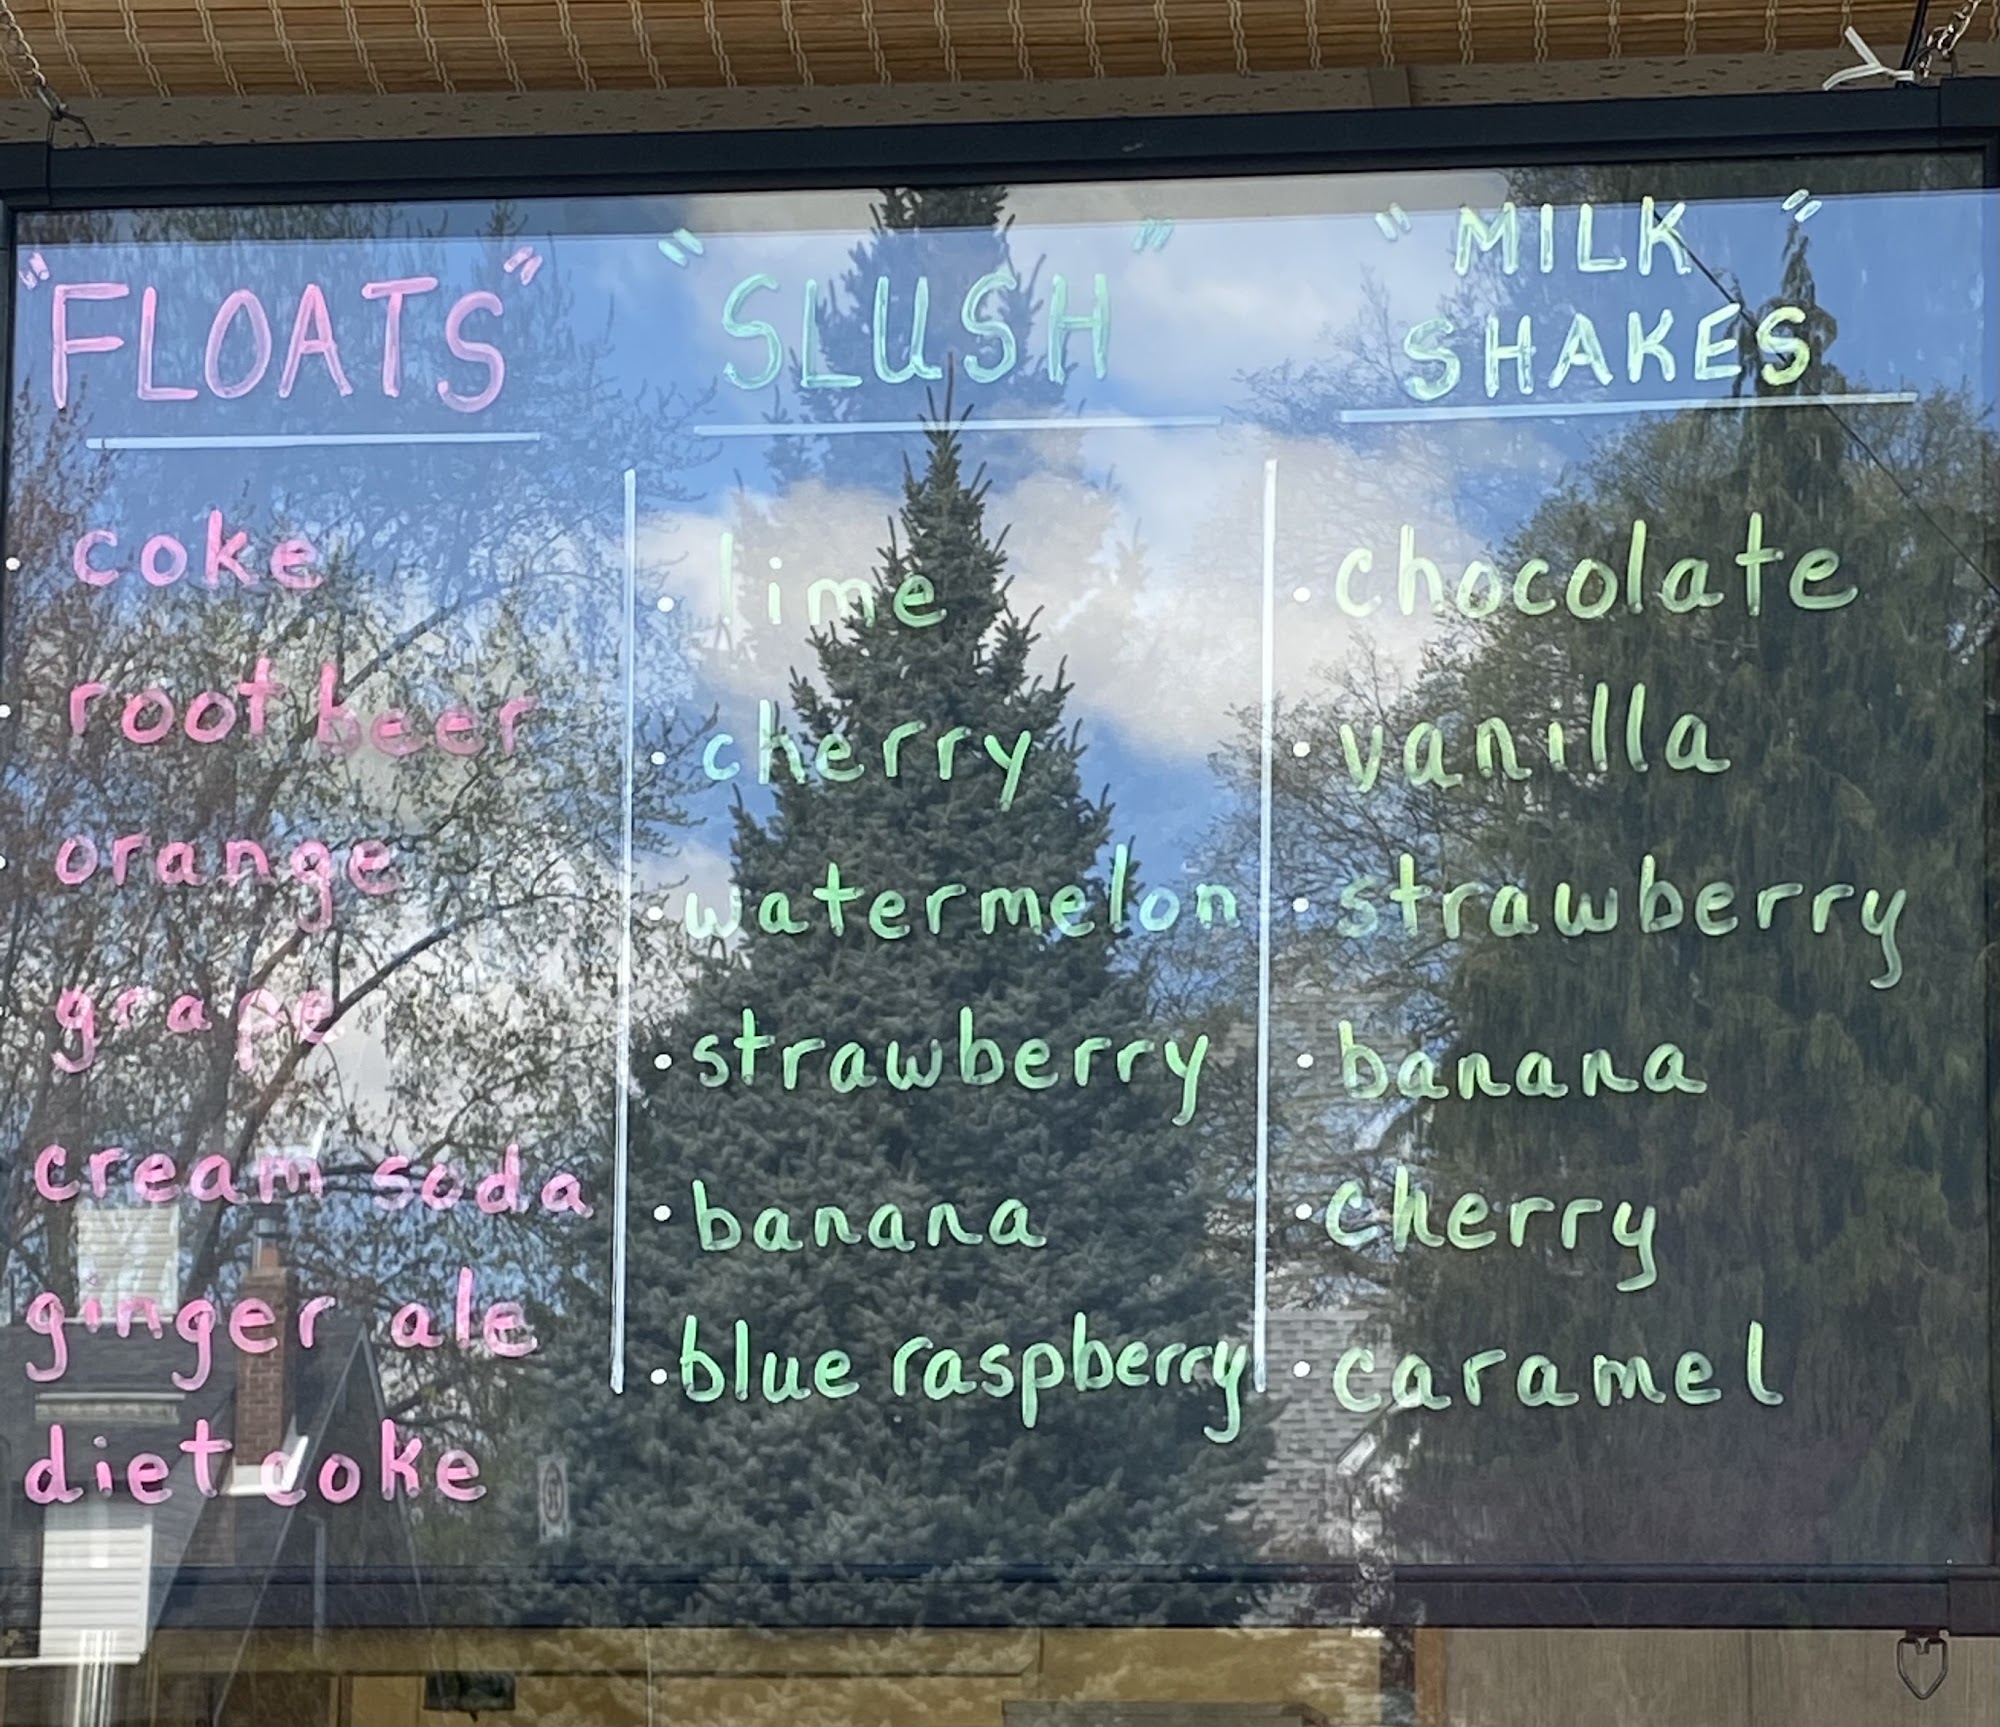 "FLOATS"
• coke
• root beer
• orange
grape
cream soda
ginger ale
diet coke
"SLUSH"
• lime
• cherry
• watermelon
• strawberry
• banana
• blue raspberry
"MILK
SHAKES"
• chocolate
• vanilla
• strawberry
• banana
• cherry
• caramel